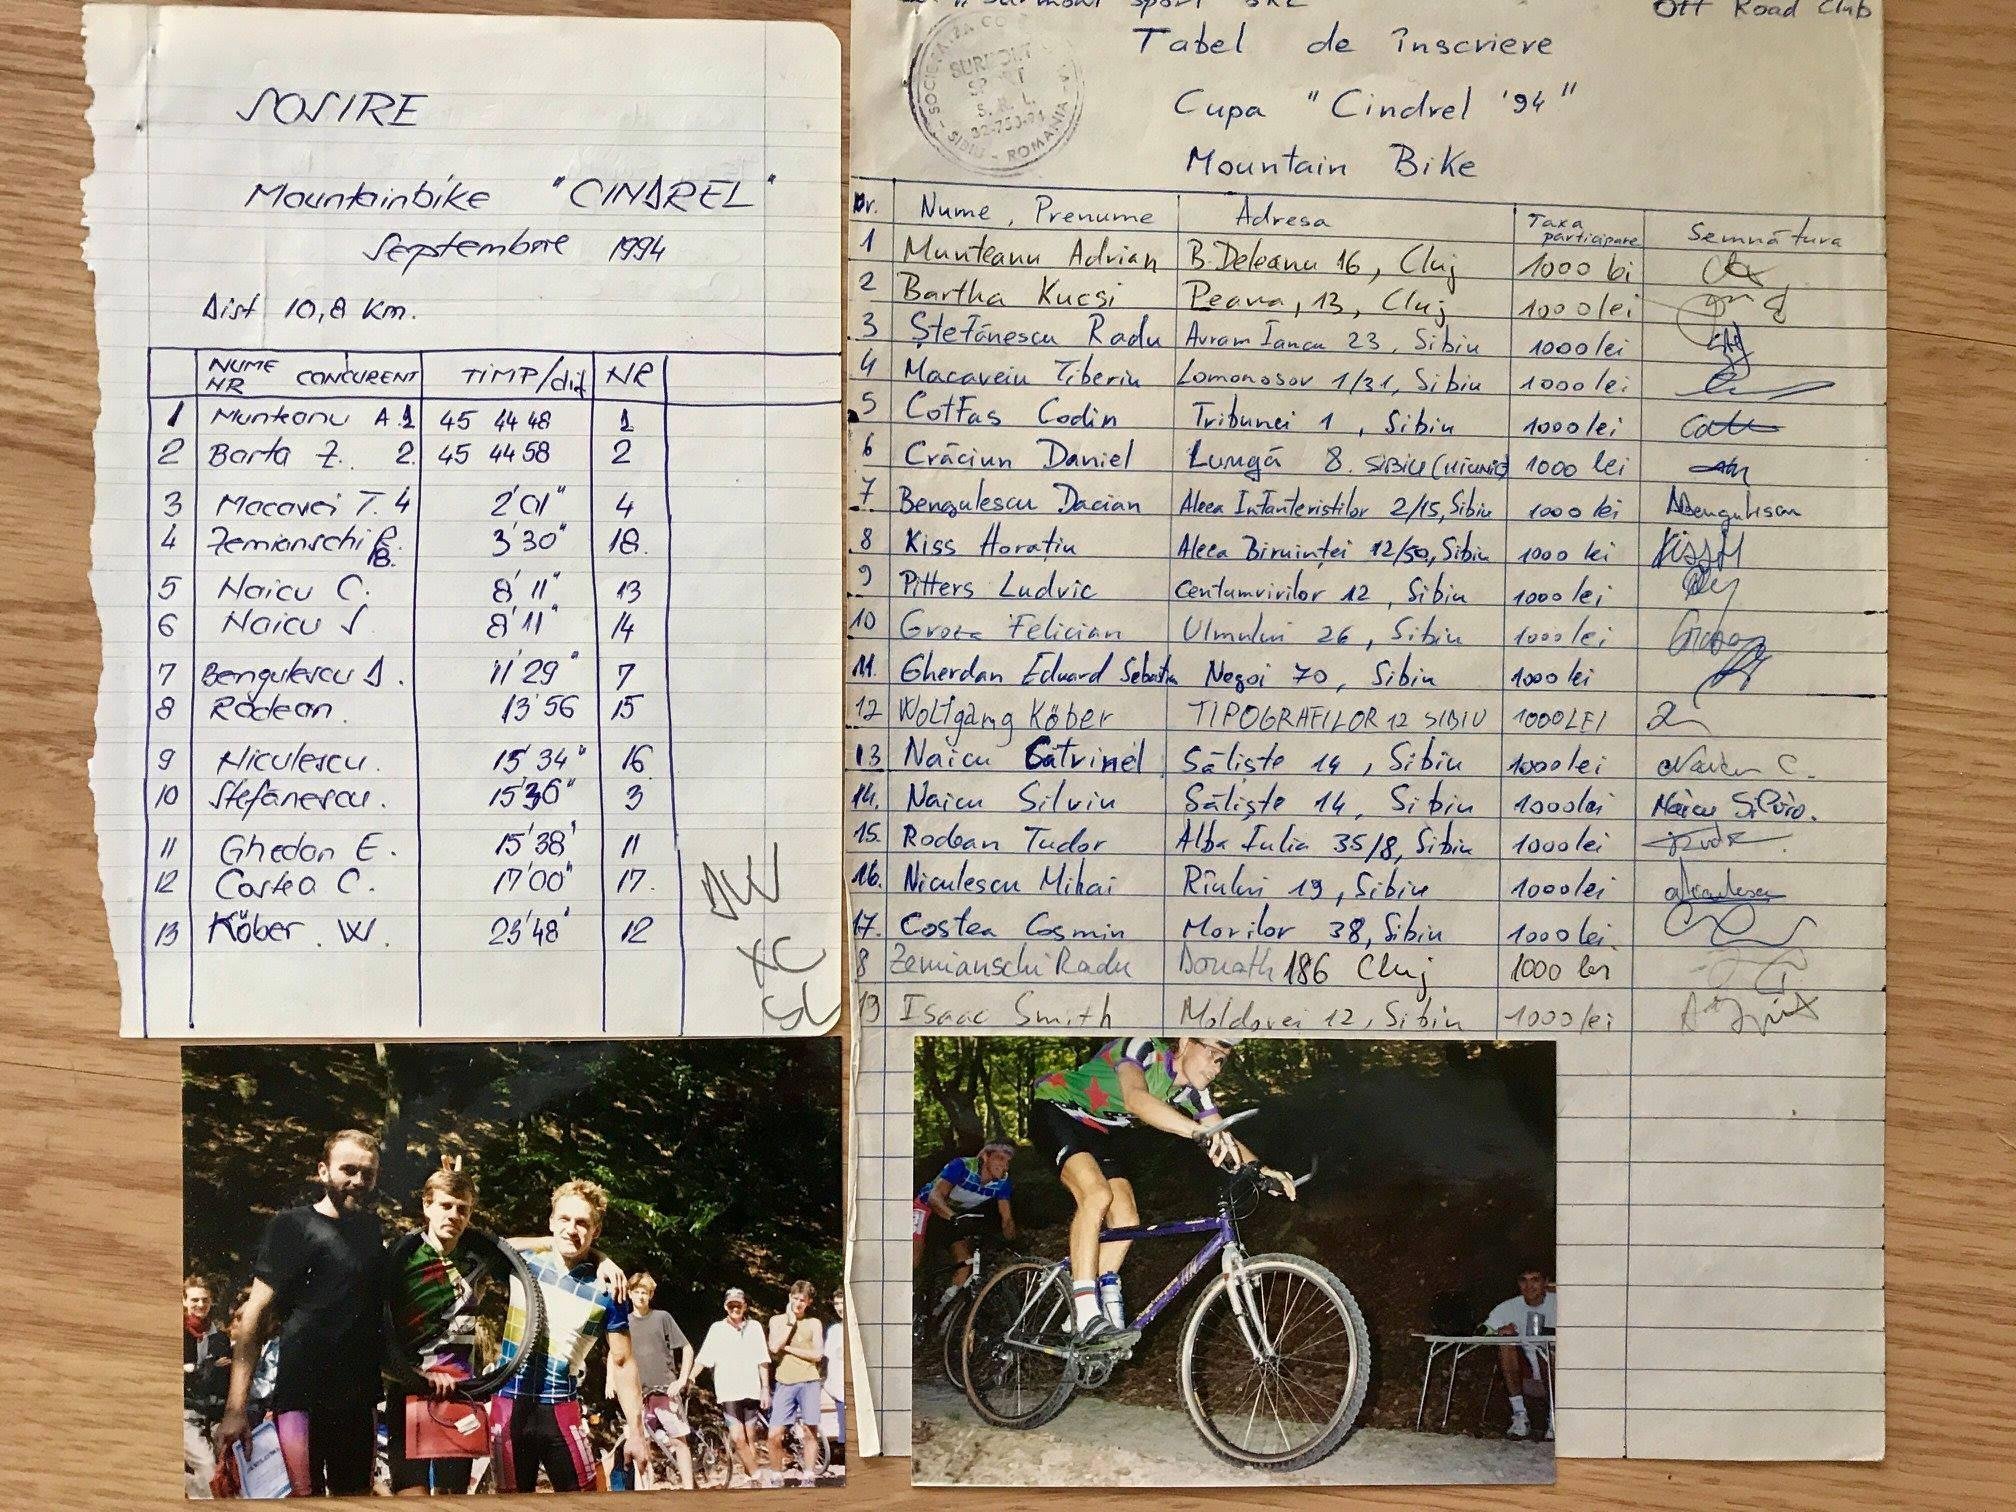 SOSIRE
Mountainbike "CINDREL"
Septembrie 1994
Dist 10,8 Km.
NUME CONCURENT TIMP/dif NR
NR
1 Munteanu A. 1 45 44 48 1
2 Barta Z. 2. 45 44 58 2
3 Macavei T. 4 2'01" 4
4 Zemianschi R. 18. 3'30" 18.
5 Naicu C. 8'11" 13
6 Naicu S 8'11" 14
7 Bengulescu D. 11'29" 7
8 Rodean. 13'56 15
9 Niculescu. 15'34" 16
10 Stefănescu. 15'36" 3
11 Ghedan E. 15'38' 11
12 Costea C. 17'00" 17.
13 Köber. W. 23'48' 12
XC
Surmont Sport SRL Off Road Club
SURMONT
SPORT
S.R.L.
SIBIU - ROMANIA
Tabel de înscriere
Cupa "Cindrel '94"
Mountain Bike
Nr. Nume, Prenume Adresa Taxa participare Semnătura
1 Munteanu Adrian B. Deleanu 16, Cluj 1000 lei
2 Bartha Kucsi Peana, 13, Cluj 1000 lei
3 Ștefănescu Radu Avram Iancu 23, Sibiu 1000 lei
4 Macaveiu Tiberiu Lomonosov 1/31, Sibiu 1000 lei
5 Cotfas Codin Tribunei 1, Sibiu 1000 lei
6 Crăciun Daniel Lungă 8. SIBIU 1000 lei
7 Bengulescu Dacian Aleea Infanteristilor 2/15, Sibiu 1000 lei Bengulescu
8 Kiss Horațiu Aleea Biruinței 12/50, Sibiu 1000 lei Kiss H
9 Pitters Ludvic Centumvirilor 12, Sibiu 1000 lei
10 Groza Felician Ulmului 26, Sibiu 1000 lei Groza
11. Gherdan Eduard Sebastian Negoi 70, Sibiu 1000 lei
12 Wolfgang Köber TIPOGRAFILOR 12 SIBIU 1000 LEI
13 Naicu Catrinel Săliște 14, Sibiu 1000 lei Naicu C.
14. Naicu Silviu Săliște 14, Sibiu 1000 lei Naicu Silviu.
15. Rodean Tudor Alba Iulia 35/8, Sibiu 1000 lei
16. Niculescu Mihai Rîului 19, Sibiu 1000 lei
17. Costea Cosmin Morilor 38, Sibiu 1000 lei.
8 Zemianschi Radu Donath 186 Cluj 1000 lei
19 Isaac Smith Moldovei 12, Sibiu 1000 lei